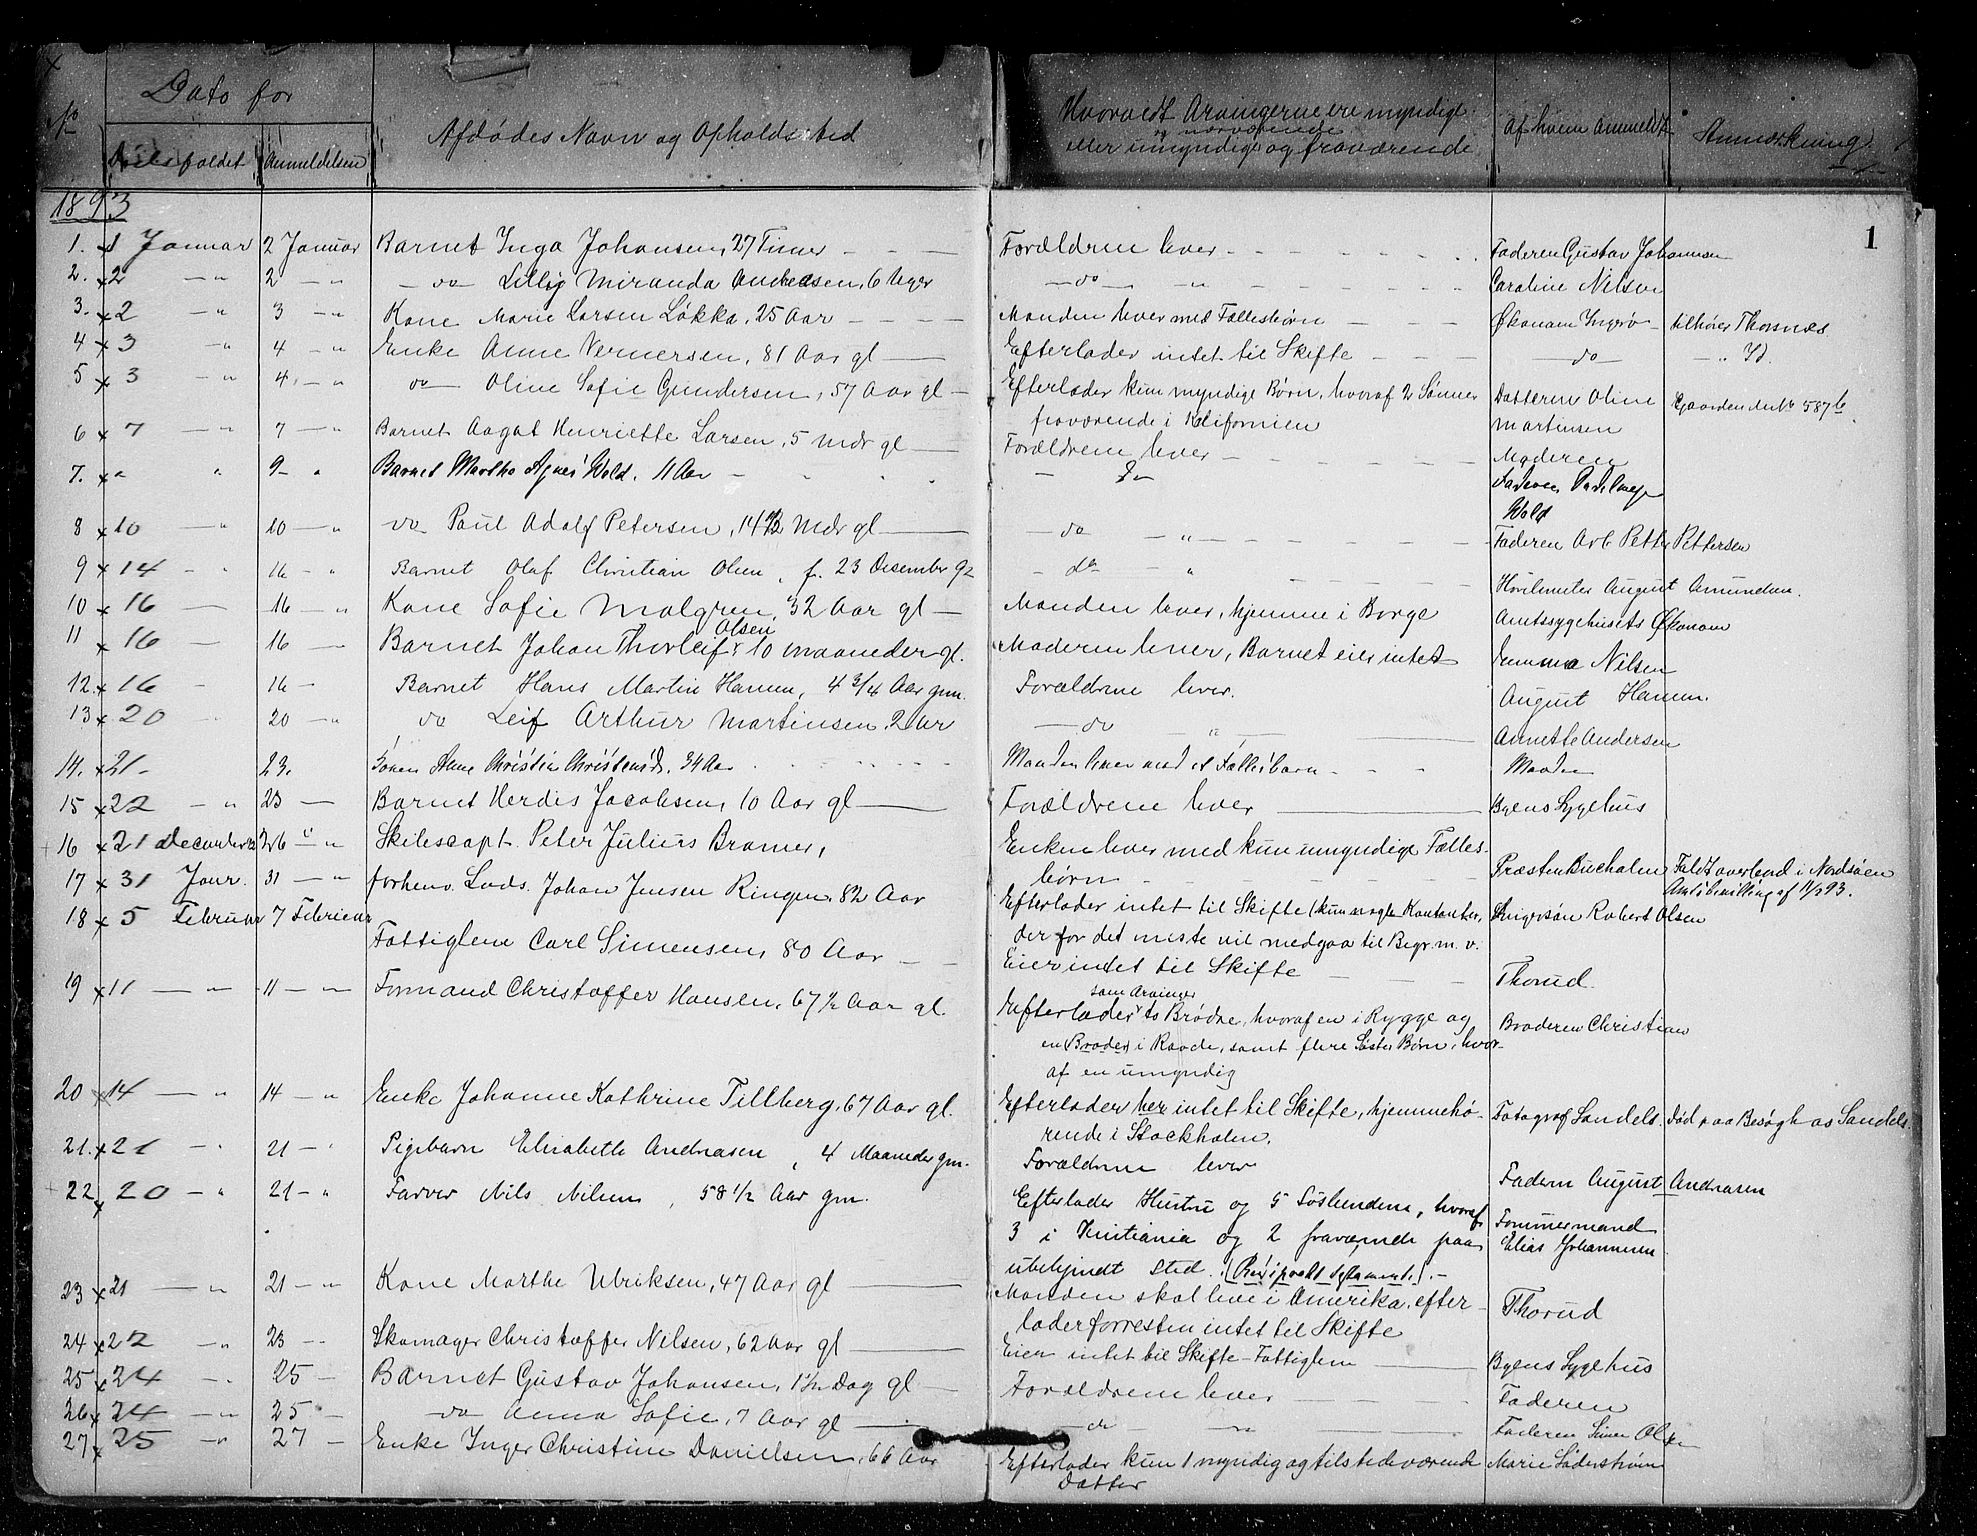 No
Dato for
Dødsfaldet
Anmeldelsen
Afdødes Navn og Opholdssted
Hvorvidt Arvingerne ere myndige
og nærværende
eller umyndige og fraværende
Af hvem anmeldt
Anmærkning
1
1893
1. x1 Januar 2 Januar Barnet Inga Johansen, 27 Timer — — Forældrene lever - - - - Faderen Gustav Johannsen
2. x2 — " 2 — " — do — Lilly Miranda Andreasen, 6 Uger — do — " — Caroline Nilsen
3. x2 — " 3 — " Kone Marie Larsen Løkka, 25 Aar — — — Manden lever med Fællesbørn — — — Økonom tilhører Thorsnæs
4 x3 — " 4 — " Enke Anne Vernersen, 81 Aar gl — Efterlader intet til Skifte — — — do — — " —
5 x3 — " 4. — " do — Oline Sofie Gundersen, 57 Aar gl — Efterlader kun myndige Børn, hvoraf 2 Sønner Datteren Oline Gaarden 587b
fraværende i Kalifornien Martinsen
6 x7 — " 7 — " Barnet Aagot Henriette Larsen, 5 Mdr gl — Forældrene lever - - - - Moderen
7. x" " 9 — " Barnet Martha Agnes Wold. 11 Aar — — Do — Faderen
Wold
8 x10 — " 10 — " do Paul Adolf Petersen, 14 1/2 Mdr gl — — do — " — Faderen Arb. Petter Pettersen
9 x14 — " 16 — " Barnet Olaf Christian Olsen, f. 23 Desember 92 — do — " — August Amundsen.
10 x16 — 16 — " Kone Sofie Malgren, 32 Aar gl — Manden lever, hjemme i Borge Amtssygehusets Økonom
Olsen
11 x16 — 16 — Barnet Johan Thorleif 10 maaneder gl. Moderen lever, Barnet eier intet Emma Nilsen
12. x16 - 16 — Barnet Hans Martin Hansen, 4 3/4 Aar gm. Forældrene lever. August Hansen.
13 x20 20 — " do Leif Arthur Martinsen 2 Aar — do " — Annette Andersen
14. x21. 23. Konen Anne Christin 34 Aar Manden lever med et Fællesbarn — — Manden
15 x22 — " 23 — Barnet Herdis Jacobsen, 10 Aar gl — Forældrene lever — Byens Sygehus
16 x21 December 92 26 " — " Skibscapt. Peter Julius Bromer, Enken lever med kun umyndige Fælles-
børn — Præsten Bucholm Faldt overbord i Nordsøen
Amts af 11/2 93.
17 x31 Janr. 31 — " forhenv. Lods. Johan Jensen Ringen, 82 Aar Efterlader intet til Skifte (kun nogle Kontanter, Robert Olsen
der for det meste vil medgaa til Begr. m. v.
18 x5 Februar 7 Februar Fattiglem Carl Simensen, 80 Aar — — Eier intet til Skifte — — Thorud.
19 x11 — " 11 — " Formand Christoffer Hansen, 67 1/2 Aar gl.
som Arvinger
Efterlader to Brødre, hvoraf en i Rygge og Broderen Christian
en (Broder) i Raade, samt flere Søster Børn, hvor-
af en umyndig
20 x14 — " 14 — " Enke Johanne Kathrine Tillberg, 67 Aar gl. Efterlader her intet til Skifte, hjemmehø- Fotograf Sandels. Død paa Besøg hos Sandels.
rende i Stockholm.
21. x21 — " 21 — " Pigebarn Elisabeth Andreasen, 4 Maaneder gm. Forældrene lever Faderen August Andreasen
22 x20 — " 21 — " Farver Nils Nilsen, 58 1/2 Aar gm. Efterlader Hustru og 5 Søskendene, hvoraf Tømmermand
3 i Kristiania og 2 fraværende paa Elias Johannesen
ubekjendt sted. (Reciprokt Testamente).—
23 x21 — " 21 — " Kone Marthe Ulriksen, 47 Aar gl — Manden skal leve i Amerika, efter- Thorud
lader forresten intet til Skifte
24 x22 — " 23 — Skomager Christoffer Nilsen, 62 Aar gl — Eier intet til Skifte — Fattiglem — Byens Sygehus
25 x24 — " 25 — Barnet Gustav Johansen, 1 1/2 Dag gl — Forældrene lever — Faderen
26 x24 — " 25 — do Anna Sofie, 7 Aar gl — — do — " — Faderen Simen Olsen
27 x25 — " 27 — Enke Inger Christine Danielsen, 66 Aar Efterlader kun 1 myndig og tilstedeværende Marie Söderstrøm
Datter